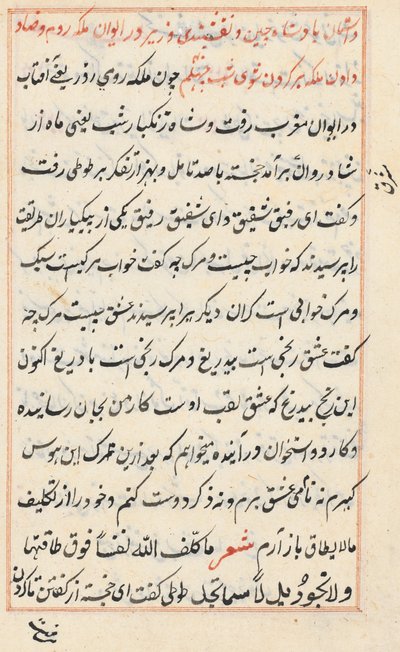 داستان پادشاه چین و نقشبندی وزیر در ایوان ملکه روم و رضا
دادن ملکه بر کردن شوی شب چهلم چون ملکه روی روز یعنی آفتاب
در ایوان مغرب رفت و شاه زنگبار شب یعنی ماه از
شادروان برآمد خجسته با صد تامل و هزار تفکر بر طوطی رفت
و گفت ای رفیق شفیق و ای شفیق رفیق یکی از پیکباران طریقت
را پرسیدند که خواب چیست و مرک چه گفت خواب مرکیست سبک
و مرک خوابی است گران دیگر پیرا پرسیدند عشق چیست مرک چه
گفت عشق رنجی است بیدریغ و مرک رنجی است با دریغ اکنون
این رنج بیدریغ که عشق لقب اوست کار من بجان رسانیده
و کارد و استخوان در آینده میخواهم که بعد ازین ترک این هوس
گیرم نه نام عشق برم و نه ذکر دوست کنم و خود را از تکلیف
مالایطاق باز آرم شعر ما کلف الله نفسا فوق طاقتها
ولا تجود ید الا بما تجد طوطی گفت ای خجسته از گفتن تا کردن